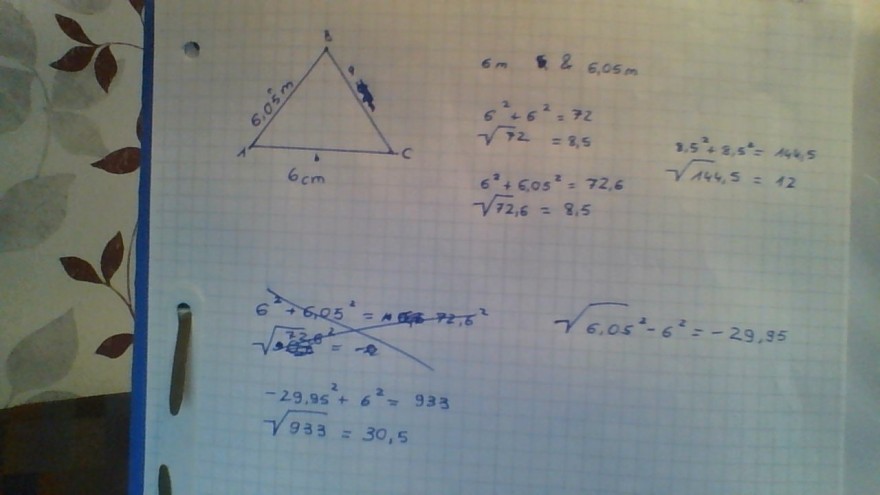 B
6,05 m
a
A
b
C
6cm
6m & 6,05m
6² + 6² = 72
√72 = 8,5
6² + 6,05² = 72,6
√72,6 = 8,5
8,5² + 8,5² = 144,5
√144,5 = 12
6² + 6,05² = 72,6²
√72,6² =
-29,95² + 6² = 933
√933 = 30,5
√6,05² - 6² = -29,95